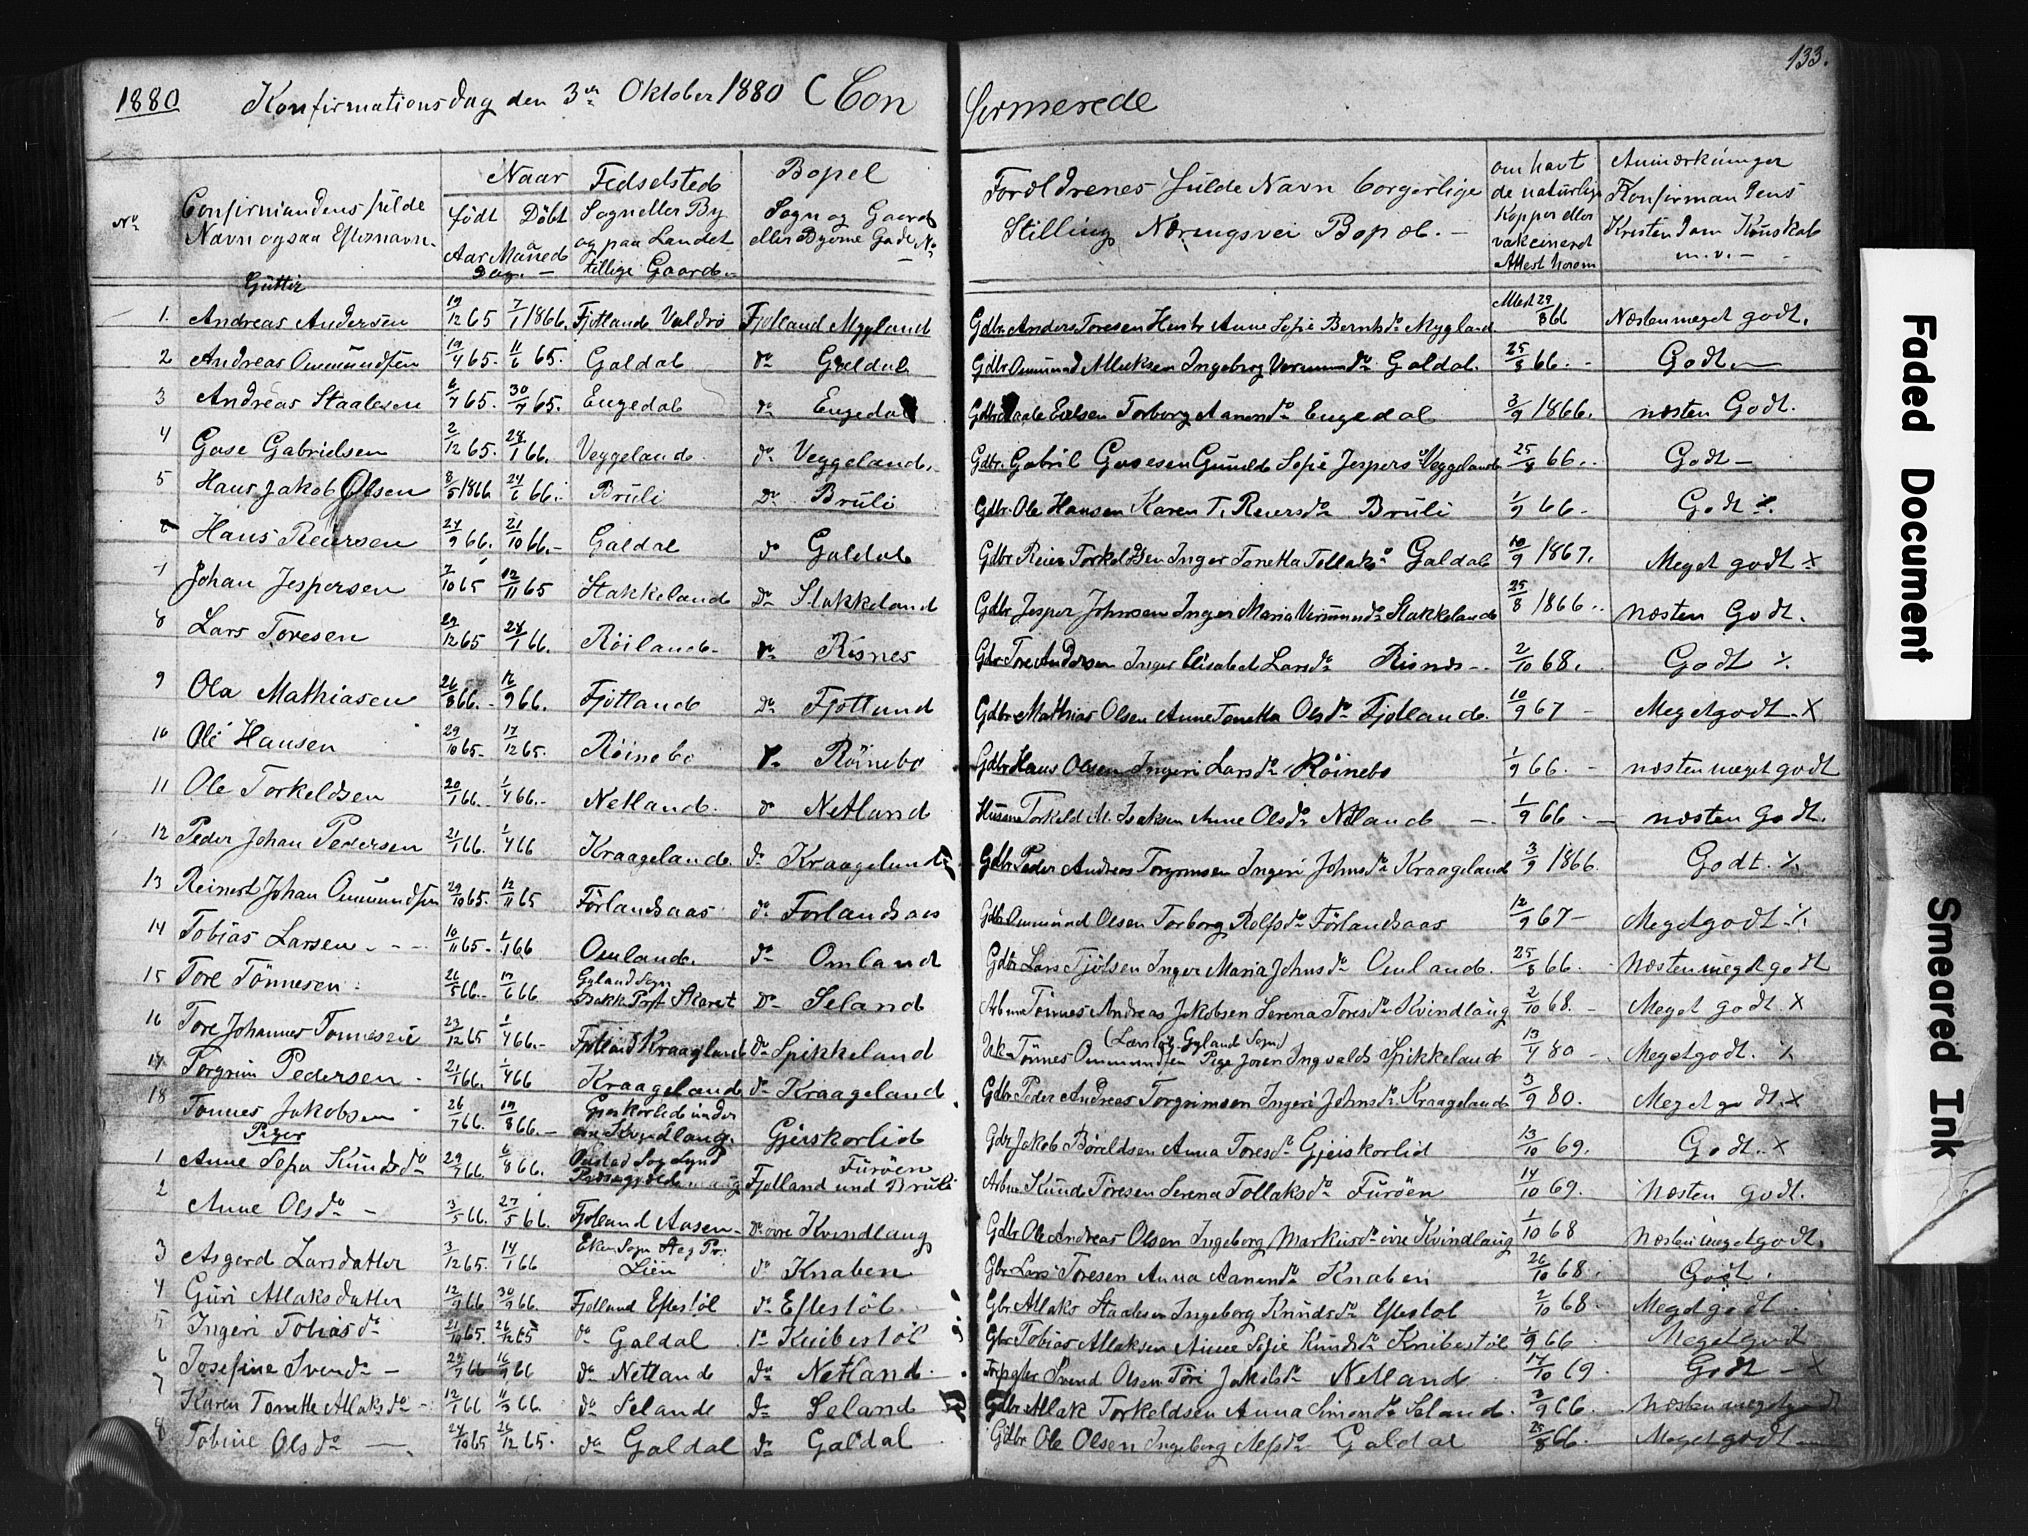 133.
1880 Konfirmationsdag den 3die Oktober 1880 Confirmerede
No
Confirmandens fulde Navn ogsaa Efternavn.
Naar
født Döbt
Aar Maaned Dag. —
Fødselsted
Sogn eller By og paa Landet tillige Gaard. —
Bopel
Sogn og Gaard eller Byerne Gade No
Foreldrenes fulde Navn borgerlige Stilling Næringsvei Bopæl. —
om havt de naturlige Kopper eller vakcinered Attest herom
Anmærkninger Konfirmandens Kristendom Kundskab m.v. —
Gutter
1. Andreas Andersen 19/12 65 7/1 1866. Fjotland Valdrö Fjotland Mygland Gdbr. Anders Toresen Hustr Anne Sofie Bernts do Mygland Attest 29/8 66 Næsten meget godt.
2 Andreas Ommundsen 19/4 65. 11/6 65. Galdal do Galdal Gdbr Ommund Atlaksen Ingeborg Vermunds do Galdal. 25/8 66. - Godt —
3 Andreas Staalesen 6/7 65. 30/7 65. Engedal do Engedal Gdbr Staale Torborg Aanensdo Engedal 3/9 1866. næsten Godt.
4 Gase Gabrielsen 2/12 65. 28/1 66. Veggeland do Veggeland. Gdbr. Gabril Gasesen Gunild Sofie Jespersdo Veggeland 25/8 66. Godt —
5 Hans Jakob Olsen 8/5 1866 24/6 66. Bruli Do Bruli Gdbr. Ole Hansen Karen T. Reiersdo Bruli 1/9 66 - Godt ٪
6 Hans Reiersen 24/9 66. 21/10 66. Galdal do Galdal Gdbr Reier Torkeldsen Inger Tonetta Tollaksdo Galdal 10/9 1867. Meget godt ٪
7 Johan Jespersen 7/10 65 12/11 65 Stakkeland Do Stakkeland Gdbr. Jesper Johnsen Inger Maria Vermunds Stakkeland 25/8 1866. næsten Godt.
8 Lars Toresen 29/12 65 28/1 66. Röiland Do Risnes Gdbr Tore Andersen Inger Elisabet Larsdo Risnes - 2/10 68. Godt ٪
9 Ola Mathiasen 26/8 66. 16/9 66. Fjotland Do Fjotland Gdbr Mathias Olsen Anne Tonetta Olsdo Fjotland. 10/9 67 - Meget godt. X
10 Ole Hansen 29/10 65. 17/12 65. Röinebo Röinebo Gdbr Hans Olsen Ingeri Larsdo Röinebo 1/9 66. - næsten meget godt
11 Ole Torkeldsen 20/1 66. 1/4 66. Netland. do Netland Husm Torkeld M. Isaksen Anne Olsdo Netland 1/9 66. - næsten Godt.
12 Peder Johan Pedersen 21/1 66. 1/4 66 Kraageland. do Kraageland Gdbr. Peder Andreas Torgrimsen Ingeri Johnsdo Kraageland 3/9 1866. Godt. ٪
13 Reinert Johan Ommundsen 29/10 65. 12/11 65 Förlandsaas do Forlandsaas Gdbr Ommund Olsen Torborg Rolfsdo Förlandsaas 12/9 67 - Meget godt ٪
14 Tobias Larsen 10/11 65. 1/1 66 Omland. do Omland Gdbr Lars Tjölsen Inger Maria Johnsdo Omland. 25/8 66. Næsten meget godt
15 Tore Tönnesen 26/5 66. 17/6 66 Gyland Sogn Bakke Prst Skaret Do Seland Arbm Tönnes Andreas Jakobsen Serena Toresdo Kvindlaug 2/10 68. - Meget godt. X
16 Tore Johannes Tonnesen 23/12 65 1/4 66. Fjotland Kraagland do Spikkeland Tönnes Ommundsen (Gyland Sogn) Pige Joren Ingvalds Spikkeland 13/4 80 Meget godt. ٪
17 Torgrim Pedersen 21/1 66. 1/4 66 Kraageland do Kraageland Gdbr Peder Andreas Torgrimsen Ingeri Johnsdo Kraageland 3/9 80. Meget godt. X
18 Tonnes Jakobsen 26/7 66. 19/8 66. Gjeiskorlid under Kvindlaug. Gjeiskorlid Gdbr Jakob Böreldsen Anna Toresdo Gjeiskorlid 13/10 69. Godt. X
Piger
1 Anne Sofia Knudsdo 29/7 66. 6/8 66. Fjotland und Bruli Furöen Arbm Knud Toresen Serena Tollaksdo Furöen 14/10 69. Næsten godt.
2 Anne Olsdo - 3/5 66. 27/5 66. Fjotland Aasen do övre Kvindlaug Gdbr Ole Andreas Olsen Ingeborg Markusdo övre Kvindlaug 1/10 68 Næsten meget godt.
3 Asgerd Larsdatter 3/12 65. 14/1 66 Eken Sogn Lien do Knaben Gbr Lars Toresen Anna Aanensdo Knaben 26/10 68. Godt.
4 Guri Atlaksdatter 12/9 66 30/9 66. Fjotland Eftestöl do Eftestöl. Gbr. Atlaks Staalesen Ingeborg Knudsdo Eftestöl 2/10 68. Meget godt
5 Ingeri Tobiasdo 21/10 65. 26/12 65 do Galdal Knibestöl Gbr Tobias Atlaksen Anne Sofie Knudsdo Knibestöl 1/9 66 Meget godt
6 Josefine Svendsdo - 25/7 66 16/9 66 do Netland do Netland. Svend Olsen Töri Jakobsdo Netland 14/10 69. Godt - X
7 Karen Tonette Atlaksdo 12/1 66 11/3 66. do Seland Do Seland Gdbr Atlak Torkeldsen Anna Simonsdo Seland. 3/9 66. næsten meget godt
8 Tobine Olsdo 24/10 65 26/12 65. do Galdal Do Galdal Gdbr Ole Olsen Ingeborg Galdal 25/8 66. Meget godt
Faded Document
Smeared Ink